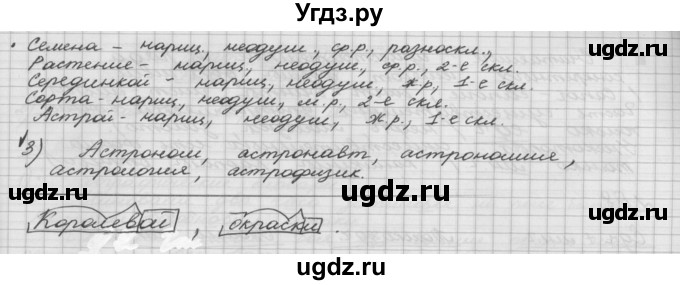 Угдз.ру
Семена - нариц., неодуш., ср.р., разноскл.,
Растение - нариц, неодуш, ср.р, 2-е скл.
Серединкой - нариц, неодуш, ж.р, 1-е скл.
Сорта - нариц, неодуш, м.р, 2-е скл.
Астрой - нариц, неодуш, ж.р, 1-е скл.
3) Астроном, астронавт, астрономия,
астрология, астрофизик.
ugdz.ru ugdz.ru ugdz.ru
Королевой, окраски.
ugdz.ru ugdz.ru
ugdz.ru